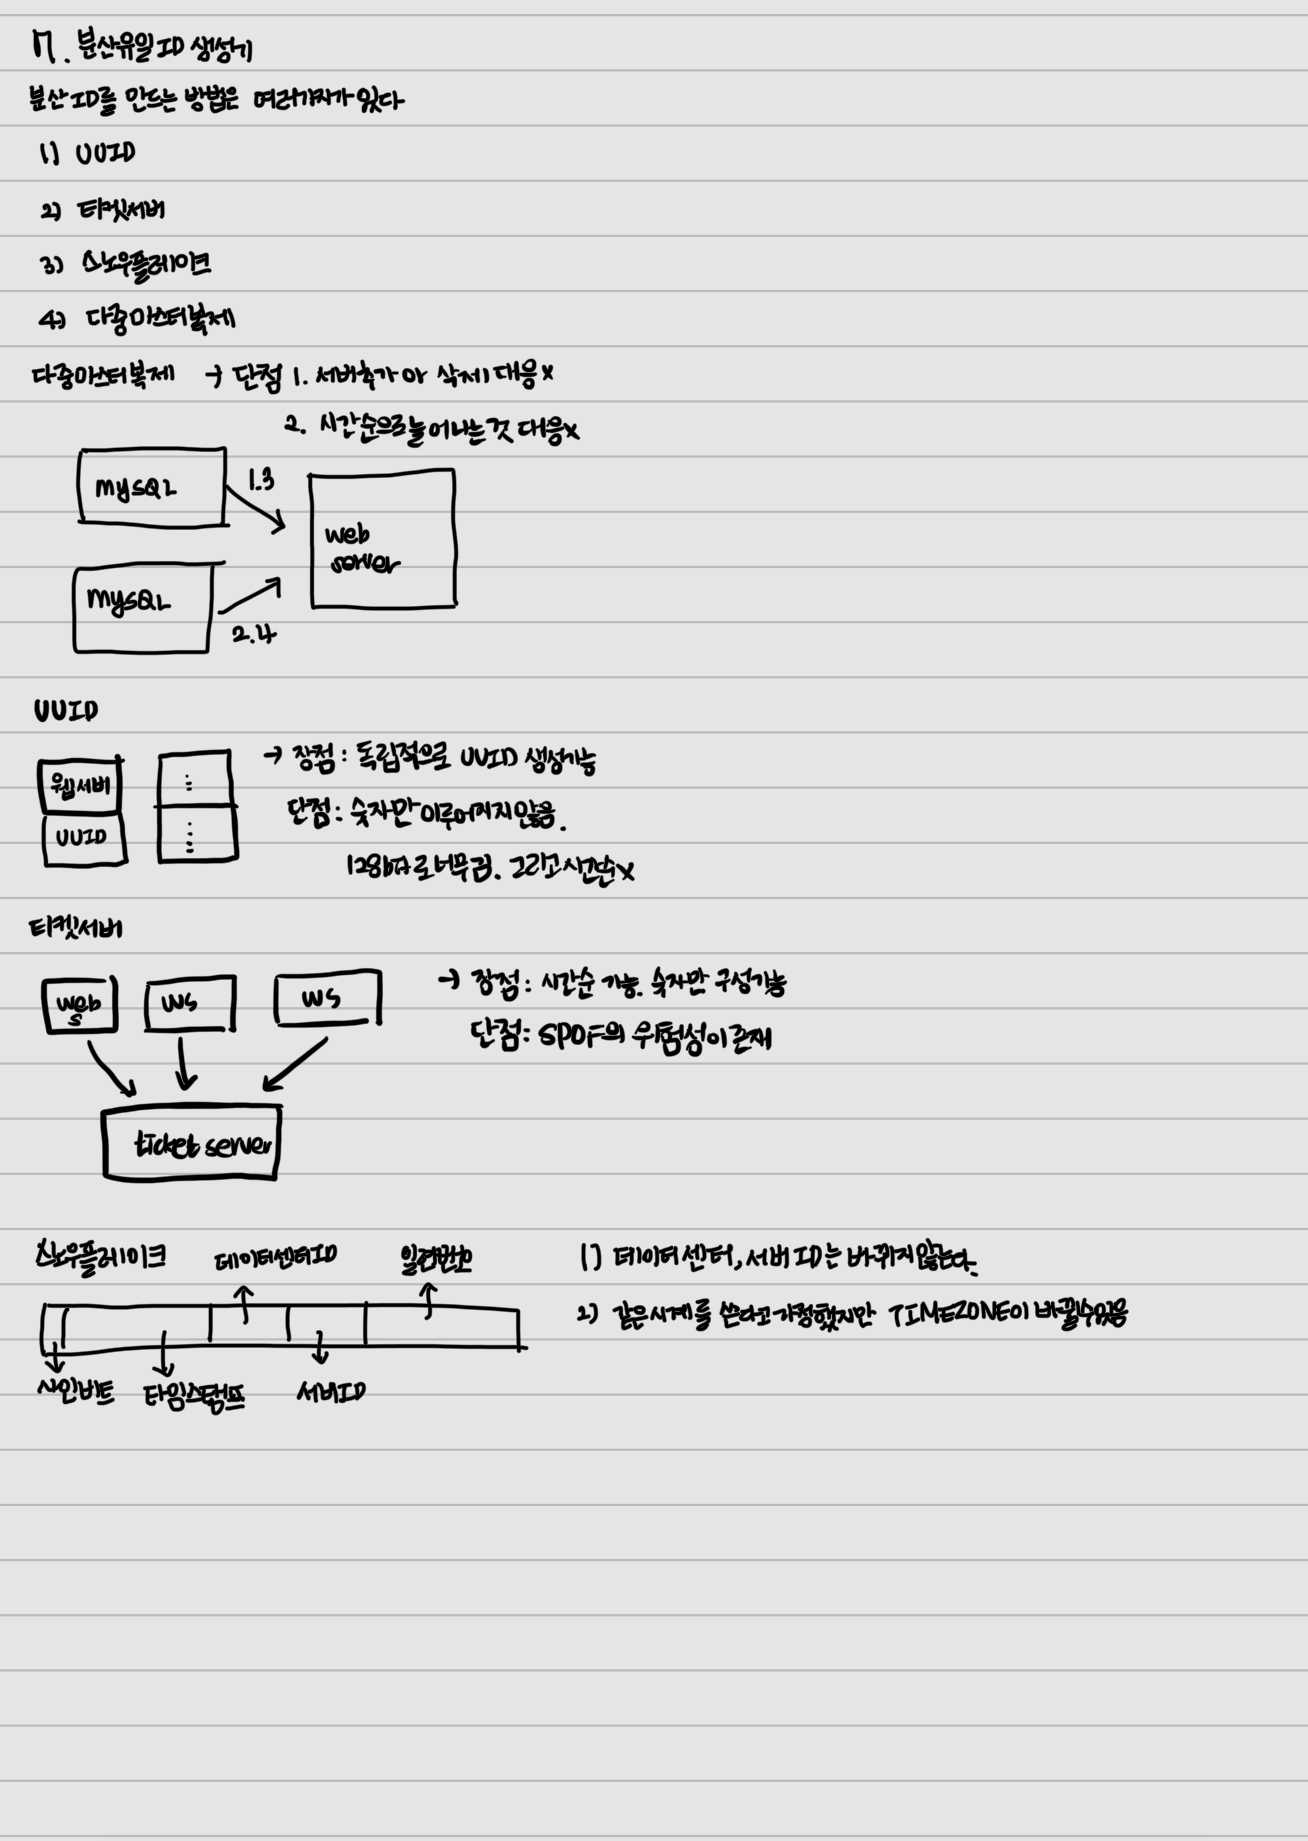 7. 분산유일ID 생성기
분산ID를 만드는 방법은 여러가지가 있다
1) UUID
2) 티켓서버
3) 스노우플레이크
4) 다중마스터복제
다중마스터복제 → 단점 1. 서버추가 아 삭제 대응x
2. 시간순으로 늘어나는것 대응x
mysQL
1.3
web
server
mysQL
2.4
UUID
웹서버
UUID
→ 장점: 독립적으로 UUID 생성가능
단점: 숫자만 이루어지지 않음.
128bit로 너무 김. 그리고 시간순x
티켓서버
web
s
ws
ws
→ 장점: 시간순 가능. 숫자만 구성가능
단점: SPOF의 위험성이 존재
ticket server
스노우플레이크 데이터센터ID 일련번호
사인비트 타임스탬프 서버ID
1) 데이터센터, 서버ID는 바뀌지않는다.
2) 같은시계를 쓴다고 가정했지만 TIMEZONE이 바뀔수있음